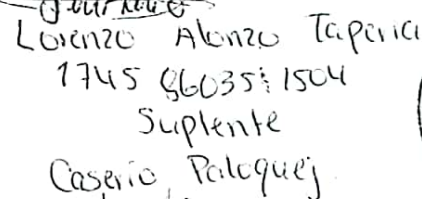 Lorenzo Alonzo Taperia
1745 86035 1504
Suplente
Caserio Paloquej